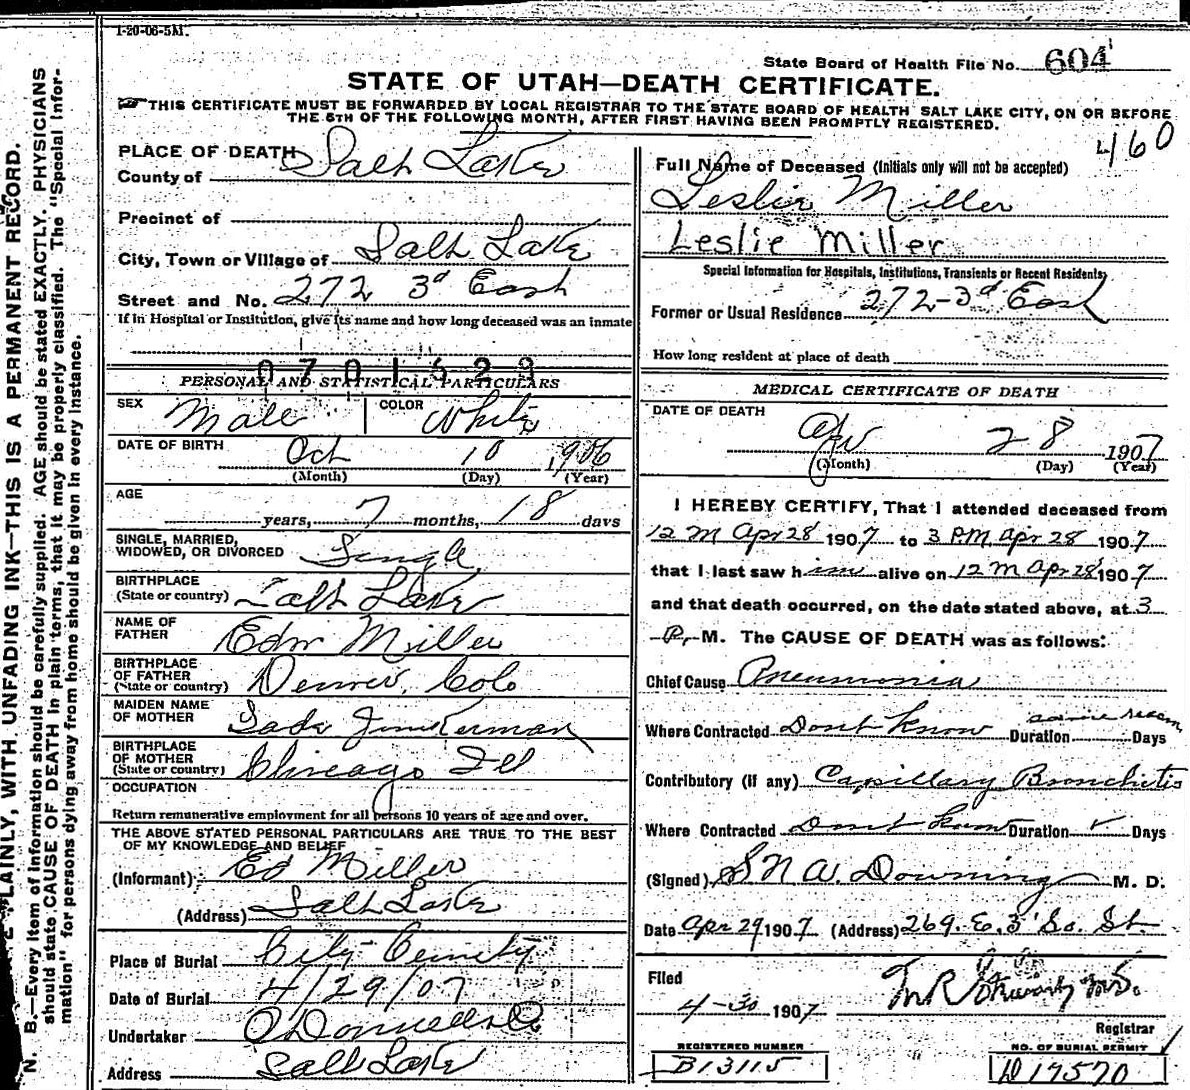 1-20-06-5M.
State Board of Health File No. 604
STATE OF UTAH—DEATH CERTIFICATE.
THIS CERTIFICATE MUST BE FORWARDED BY LOCAL REGISTRAR TO THE STATE BOARD OF HEALTH SALT LAKE CITY, ON OR BEFORE
THE 5TH OF THE FOLLOWING MONTH, AFTER FIRST HAVING BEEN PROMPTLY REGISTERED.
460
PLACE OF DEATH
County of Salt Lake
Precinct of
City, Town or Village of Salt Lake
Street and No. 272 3d East
If in Hospital or Institution, give its name and how long deceased was an inmate
0701529
PERSONAL AND STATISTICAL PARTICULARS
SEX Male COLOR White
DATE OF BIRTH Oct 10 1906
(Month) (Day) (Year)
AGE
years, 7 months, 18 days
SINGLE, MARRIED,
WIDOWED, OR DIVORCED Single
BIRTHPLACE
(State or country) Salt Lake
NAME OF
FATHER Edw Miller
BIRTHPLACE
OF FATHER
(State or country) Denver, Colo
MAIDEN NAME
OF MOTHER
BIRTHPLACE
OF MOTHER
(State or country) Chicago Ill
OCCUPATION
Return remunerative employment for all persons 10 years of age and over.
THE ABOVE STATED PERSONAL PARTICULARS ARE TRUE TO THE BEST
OF MY KNOWLEDGE AND BELIEF
(Informant) Ed Miller
(Address) Salt Lake
Place of Burial City Cemetery
Date of Burial 4/29/07
Undertaker O'Donnell & Co
Address Salt Lake
Full Name of Deceased (Initials only will not be accepted)
Leslie Miller
Leslie Miller
Special Information for Hospitals, Institutions, Transients or Recent Residents;
Former or Usual Residence 272-3d East
How long resident at place of death
MEDICAL CERTIFICATE OF DEATH
DATE OF DEATH
Apr 28 1907
(Month) (Day) (Year)
I HEREBY CERTIFY, That I attended deceased from
12 M Apr 28 1907 to 3 P.M. Apr 28 1907
that I last saw him alive on 12 M Apr 28 1907
and that death occurred, on the date stated above, at 3
P. M. The CAUSE OF DEATH was as follows:
Chief Cause Pneumonia
Where Contracted Dont know Duration Days
Contributory (if any) Capillary Bronchitis
Where Contracted Dont know Duration Days
(Signed) S N A. Downing M. D.
Date Apr 29 1907 (Address) 269. E. 3 So. St.
Filed
4-30 1907
Registrar
REGISTERED NUMBER
B13115
NO. OF BURIAL PERMIT
D 17570
PLAINLY, WITH UNFADING INK—THIS IS A PERMANENT RECORD.
N. B.—Every item of information should be carefully supplied. AGE should be stated EXACTLY. PHYSICIANS
should state CAUSE OF DEATH in plain terms, that it may be properly classified. The "Special Infor-
mation" for persons dying away from home should be given in every instance.